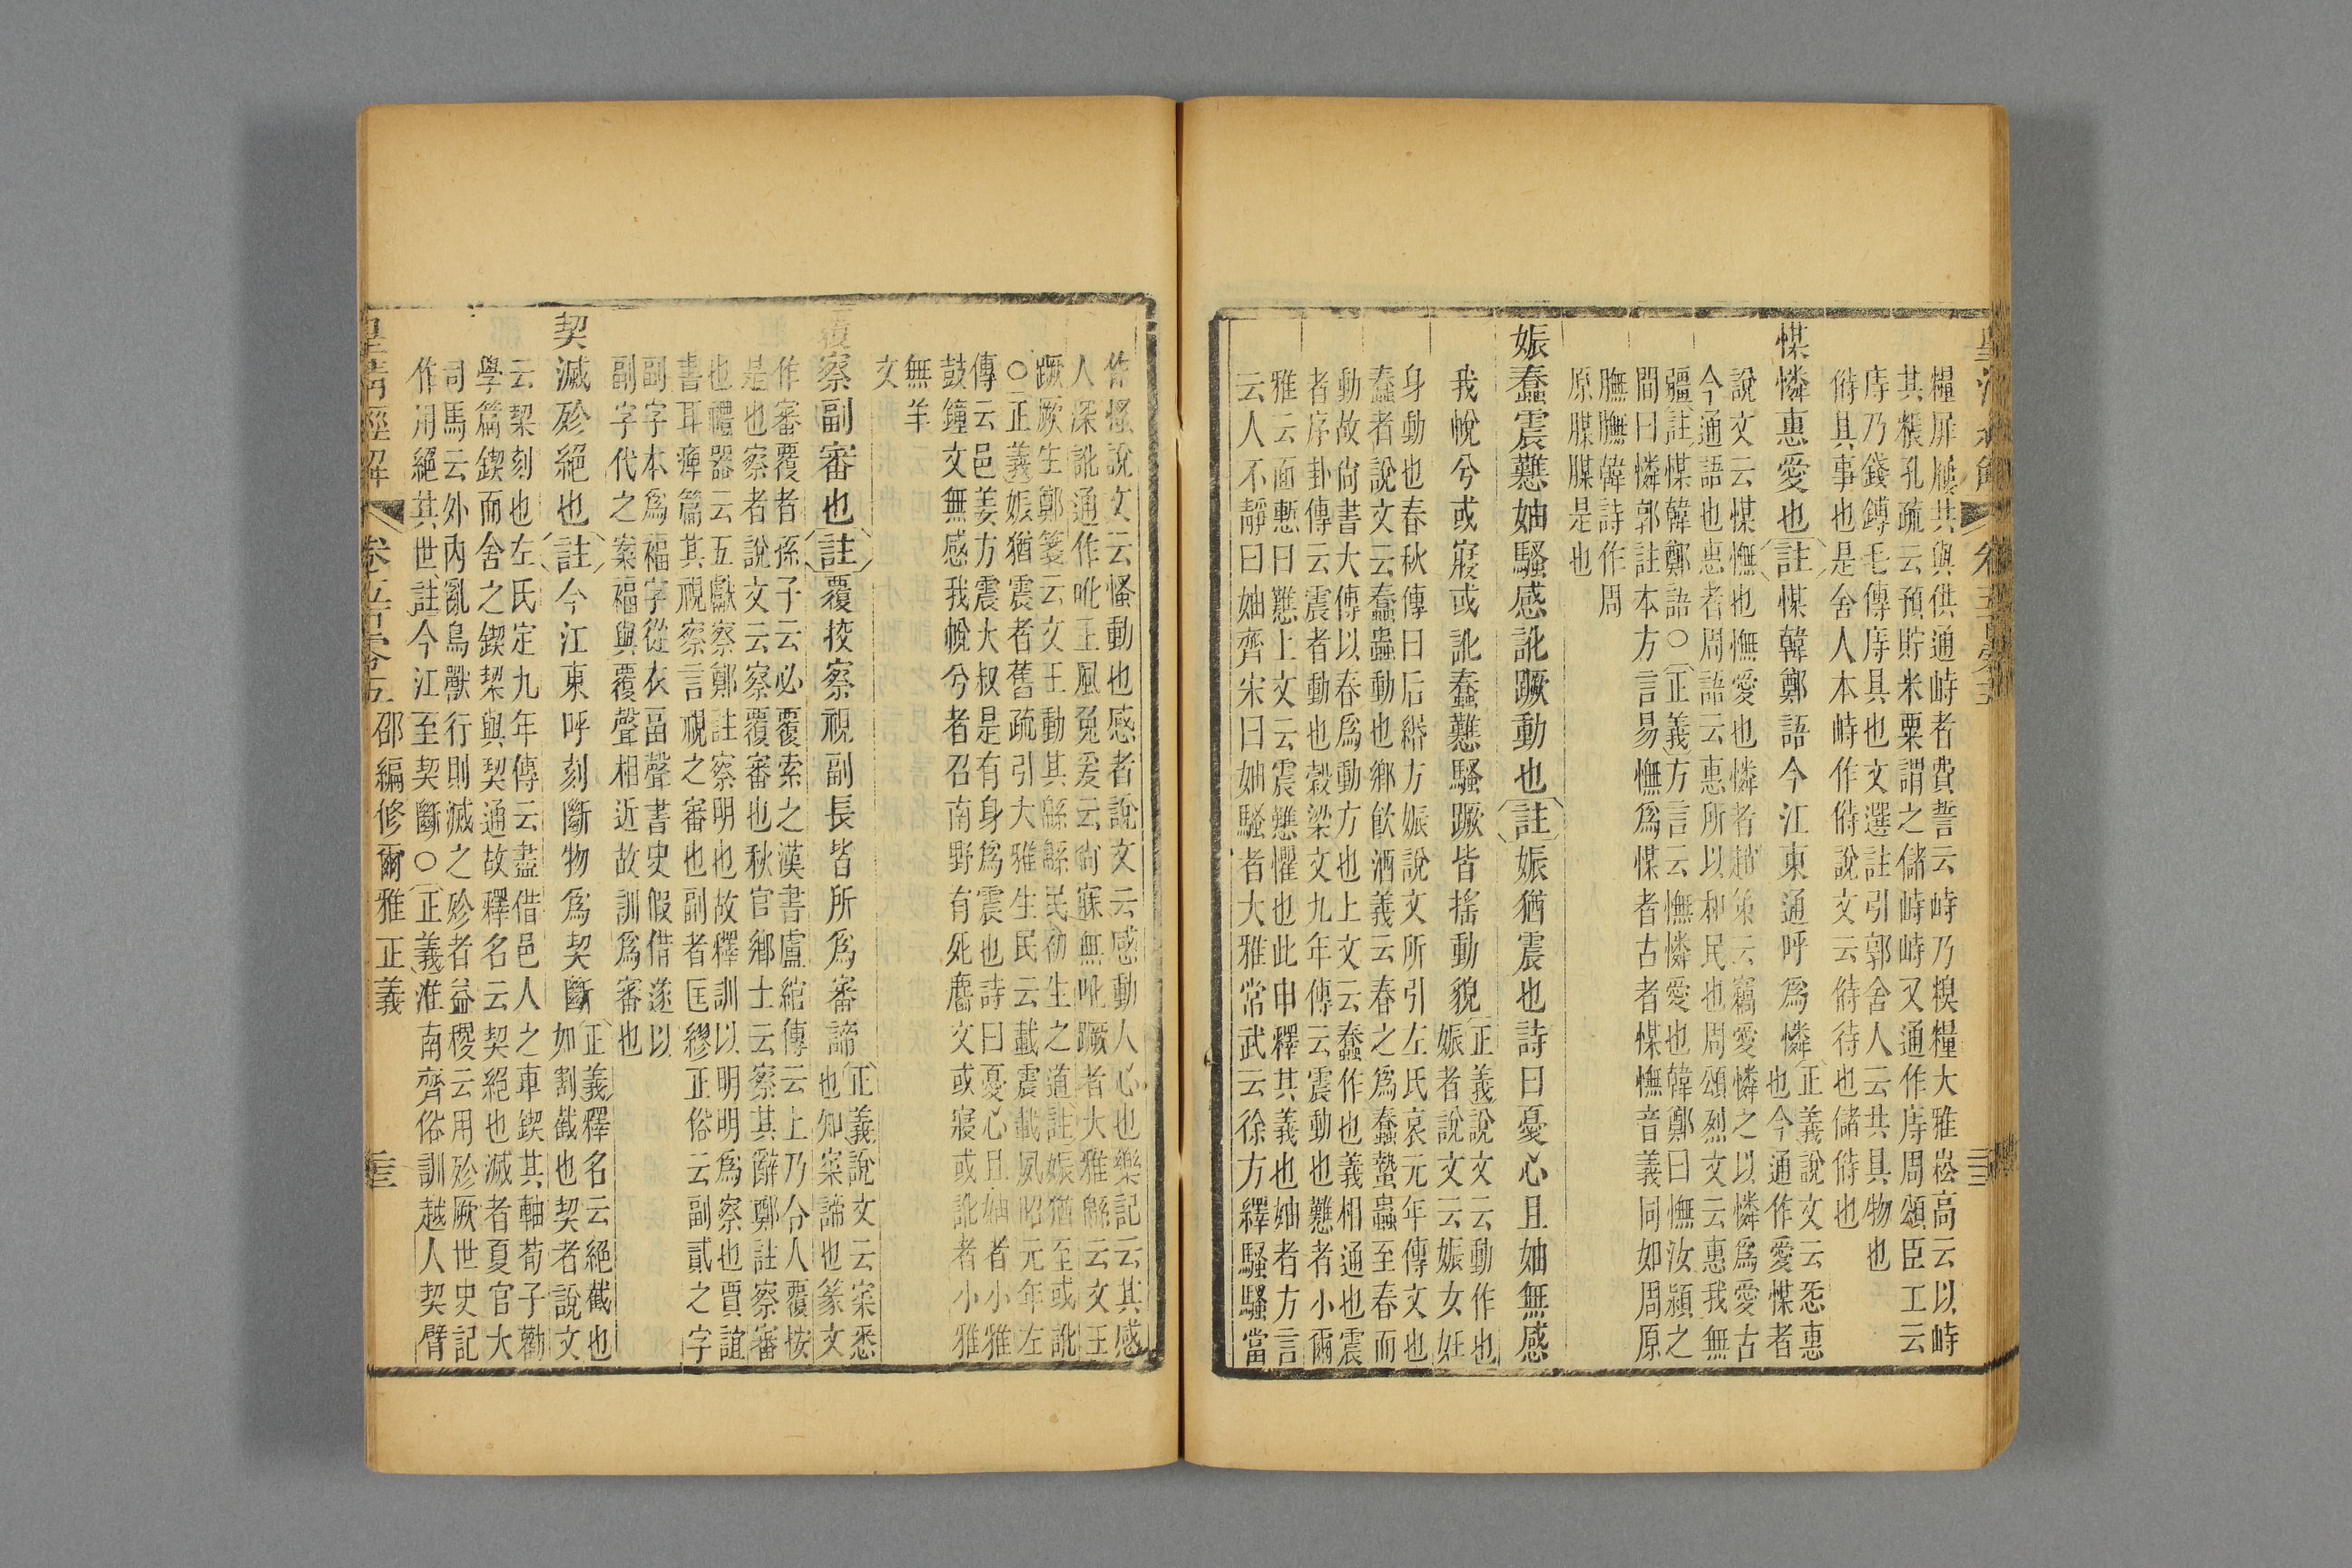 糧屝屨其與供通峙者費誓云峙乃糗糧大雅崧高云以峙
其粻孔疏云預貯米粟謂之儲峙峙又通作庤周頌臣工云
庤乃錢鎛毛傳庤具也文選註引郭舍人云共具物也
偫其事也是舍人本峙作偫說文云偫待也儲偫也
煤憐惠愛也註煤韓鄭語今江東通呼爲憐
正義說文云㤅惠
也今通作愛煤者
說文云煤憮也憮愛也憐者趙策云竊愛憐之以憐爲愛古
今通語也惠者周語云惠所以和民也周頌烈文云惠我無
疆註煤韓鄭語○正義方言云憮憐愛也韓鄭曰憮汝潁之
間曰憐郭註本方言易憮爲煤者古者煤憮音義同如周原
膴膴韓詩作周
原腜腜是也
娠蠢震戁妯騷感訛蹶動也註娠猶震也詩曰憂心且妯無感
我帨兮或寢或訛蠢戁騷蹶皆搖動貌
正義說文云動作也
娠者說文云娠女妊
身動也春秋傳曰后緡方娠說文所引左氏哀元年傳文也
蠢者說文云蠢蟲動也鄉飲酒義云春之爲蠢蟄蟲至春而
動故尙書大傳以春爲動方也上文云蠢作也義相通也震
者序卦傳云震者動也穀梁文九年傳云震動也戁者小爾
雅云面慙曰戁上文云震戁懼也此申釋其義也妯者方言
云人不靜曰妯齊宋曰妯騷者大雅常武云徐方繹騷騷當
作慅說文云慅動也感者說文云感動人心也樂記云其感
人深訛通作吪王風兔爰云尙寐無吪蹶者大雅緜云文王
蹶厥生鄭箋云文王動其緜緜民初生之道註娠猶至或訛
○正義娠猶震者舊疏引大雅生民云載震載夙昭元年左
傳云邑姜方震大叔是有身爲震也詩曰憂心且妯者小雅
鼓鐘文無感我帨兮者召南野有死麕文或寢或訛者小雅
無羊
文
覆察副審也註覆挍察視副長皆所爲審諦
正義說文云寀悉
也知寀諦也篆文
作審覆者孫子云必覆索之漢書盧綰傳云上乃令人覆按
是也察者說文云察覆審也秋官鄉士云察其辭鄭註察審
也禮器云五獻察鄭註察明也故釋訓以明明爲察也賈誼
書耳痺篇其視察言視之審也副者匡繆正俗云副貳之字
副字本爲褔字從衣畐聲書史假借遂以
副字代之案褔與覆聲相近故訓爲審也
契滅殄絕也註今江東呼刻斷物爲契斷
正義釋名云絕截也
如割截也契者說文
云㓞刻也左氏定九年傳云盡借邑人之車鍥其軸荀子勸
學篇鍥而舍之鍥㓞與契通故釋名云契絕也滅者夏官大
司馬云外內亂鳥獸行則滅之殄者益稷云用殄厥世史記
作用絕其世註今江至契斷○正義淮南齊俗訓越人契臂
皇清經解 卷五百零五 邵編修爾雅正義